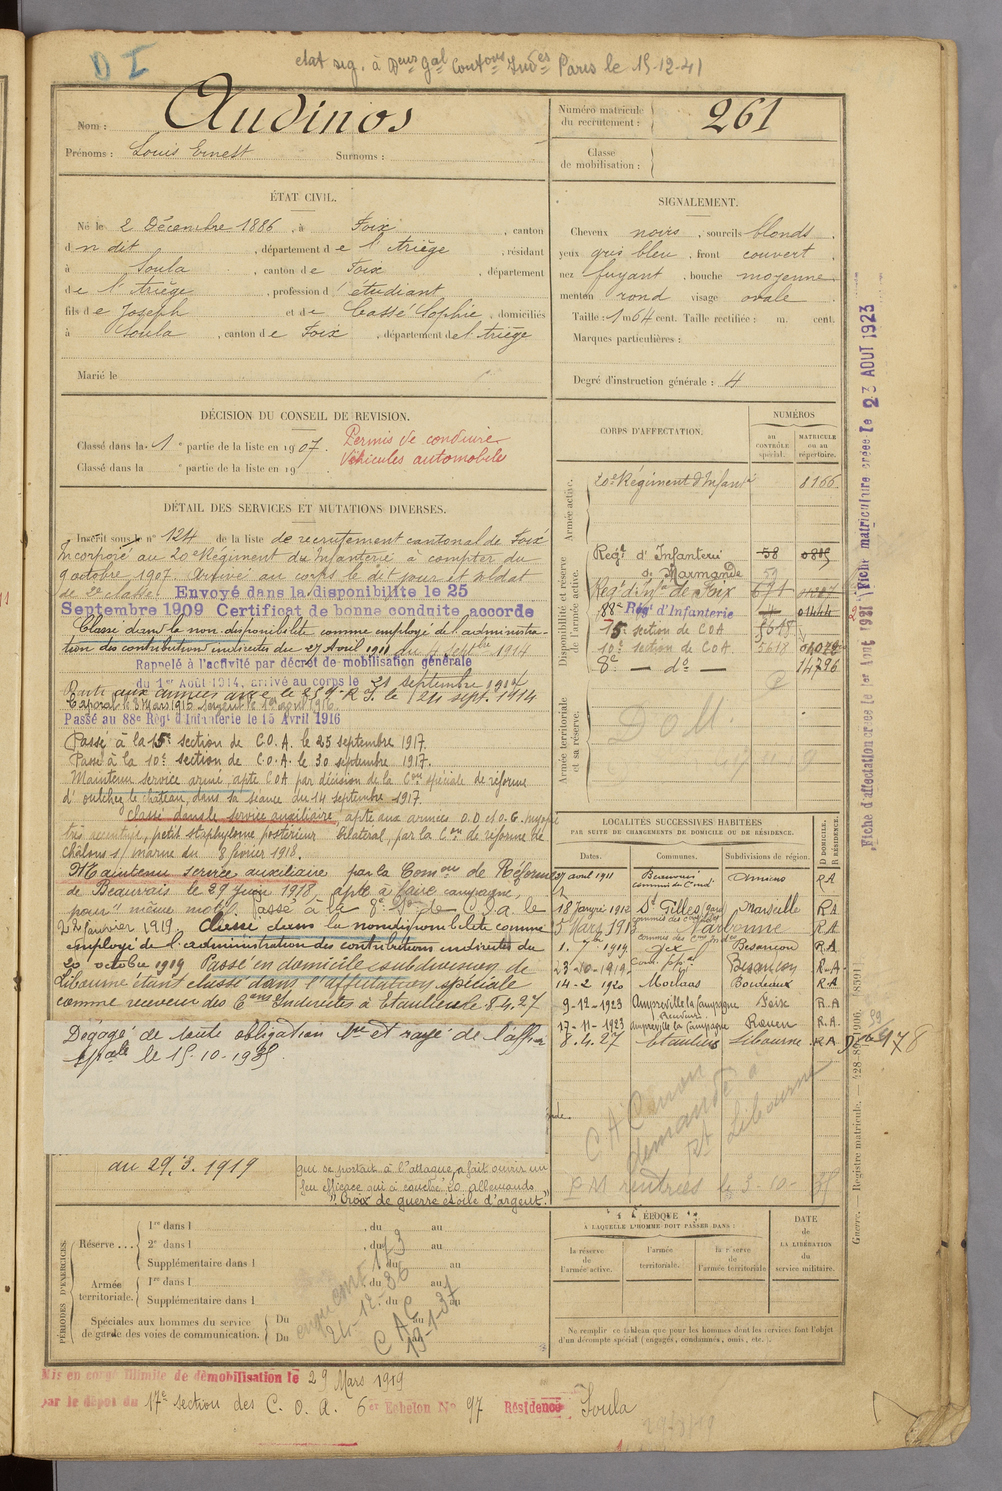 D I
etat sig. à Deur Gal Contons Indes Paris le 15-12-41
Nom : Audinos
Prénoms : Louis Ernest Surnoms :
Numéro matricule du recrutement : 261
Classe de mobilisation :
ÉTAT CIVIL.
Né le 2 Décembre 1886, à Foix, canton
dudit, département de l'Ariège, résidant
à Soula, canton de Foix, département
de l'Ariège, profession d'étudiant
fils de Joseph et de Cassé Sophie, domiciliés
à Soula, canton de Foix, département de l'Ariège
Marié le
SIGNALEMENT.
Cheveux noirs, sourcils blonds,
yeux gris bleu, front couvert,
nez fuyant, bouche moyenne
menton rond visage ovale
Taille : 1 m 64 cent. Taille rectifiée : m. cent.
Marques particulières :
Degré d'instruction générale : 4
DÉCISION DU CONSEIL DE REVISION.
Classé dans la 1e partie de la liste en 1907.
Classé dans la e partie de la liste en 19
Permis de conduire
Véhicules automobile
DÉTAIL DES SERVICES ET MUTATIONS DIVERSES.
Inscrit sous le n° 124 de la liste de recrutement cantonal de Foix
Incorporé au 20e Régiment d'Infanterie à compter du
9 octobre 1907. Arrivé au corps le dit jour et soldat
de 2e classe. Envoyé dans la disponibilité le 25
Septembre 1909 Certificat de bonne conduite accordé
Classé dans la non-disponibilité comme employé de l'administra-
tion des contributions indirectes du 27 Avril 1911 du 4 septbre 1914
Rappelé à l'activité par décret de mobilisation générale
du 1er Août 1914, arrivé au corps le 21 septembre 1914
Parti aux armées avec le 259e R.I. le 24 sept. 1914
Caporal le 8 Mars 1915 Sergent le 1er avril 1916.
Passé au 88e Régt d'Infanterie le 15 Avril 1916
Passé à la 15e section de C.O.A. le 25 septembre 1917.
Passé à la 10e section de C.O.A. le 30 septembre 1917.
Maintenu service armé, apte COA par décision de la Con spéciale de réforme
d'oulchy le château, dans sa séance du 14 septembre 1917.
Classé dans le service auxiliaire, apte aux armées O.D et O.G. myopie
très accentuée, petit staphylome postérieur bilatéral, par la Con de réforme de
Châlons s/ Marne du 8 février 1918.
Maintenu service auxiliaire par la Comon de Réforme
de Beauvais le 27 Juin 1918, apte à faire campagne,
pour "même motif". Passé à la 8e Son de C.O.A. le
22 janvier 1919. Classé dans la non disponibilité comme
employé de l'administration des contributions indirectes du
20 octobre 1919 Passé en domicile subdivision de
Libourne étant classé dans l'affectation spéciale
comme receveur des Cons Indirectes à Etauliers le 8.4.27
Dégagé de toute obligation Mre et rayé de l'affon
spale le 15-10-1935.
du 29.3.1919
qui se portait à l'attaque, a fait ouvrir un
feu efficace qui a couché 20 allemands
"Croix de guerre étoile d'argent"
CORPS D'AFFECTATION.
NUMÉROS
au CONTRÔLE spécial.
MATRICULE ou au répertoire.
Armée active.
20e Régiment d'Infanie 8166
Disponibilité et réserve de l'armée active.
Regt d'Infanterie 58
de Marmande 59
Regt d'Infie de Foix 671
88e Régt d'Infanterie 01444
15e section de COA 5618
10e section de C.O.A. 5618
8e — do — 14796
Armée territoriale et sa réserve.
DOM.
LOCALITÉS SUCCESSIVES HABITÉES
PAR SUITE DE CHANGEMENTS DE DOMICILE OU DE RÉSIDENCE.
Dates. Communes. Subdivisions de région. D DOMICILE. R RÉSIDENCE.
27 avril 1911 Beauvais commis des Cond Amiens RA
18 Janvier 1912 St Gilles (Gard) Marseille RA
5 Mars 1913 Narbonne RA
1. 7bre 1919 Gex Besançon RA
23-10-1919 Besançon R-A
14-2-1920 Morlaas Bordeaux RA
9-12-1923 Ampreville la Campagne Foix R.A
17-11-1923 Ampreville la Campagne Rouen R.A.
8.4.27 Etauliers Libourne RA
C A Cenon
demandé a
Rt Libourne
PM rentrées le 3-10-35
ÉPOQUE
À LAQUELLE L'HOMME DOIT PASSER DANS :
la réserve de l'armée active.
l'armée territoriale.
la réserve de l'armée territoriale
DATE de LA LIBÉRATION du service militaire.
Ne remplir ce tableau que pour les hommes dont les services font l'objet
d'un décompte spécial (engagés, condamnés, omis, etc.).
PÉRIODES D'EXERCICES.
Réserve....
1re dans l , du au
2e dans l , du au
Supplémentaire dans l , du au
Armée territoriale.
1re dans l , du au
Supplémentaire dans l , du au
Spéciales aux hommes du service
de garde des voies de communication.
Du au
Du au
24-12-36
C A C
19-1-37
Mis en congé illimité de démobilisation le 29 Mars 1919
par le dépôt du 17e section des C. O. A. 6er Echelon No 97 Résidence Soula
Fiche d'affectation créée le 1er Aout 1921 Fiche matriculaire créée le 23 AOUT 1923
Guerre. — Registre matricule. — 428-89-1906. [8591]